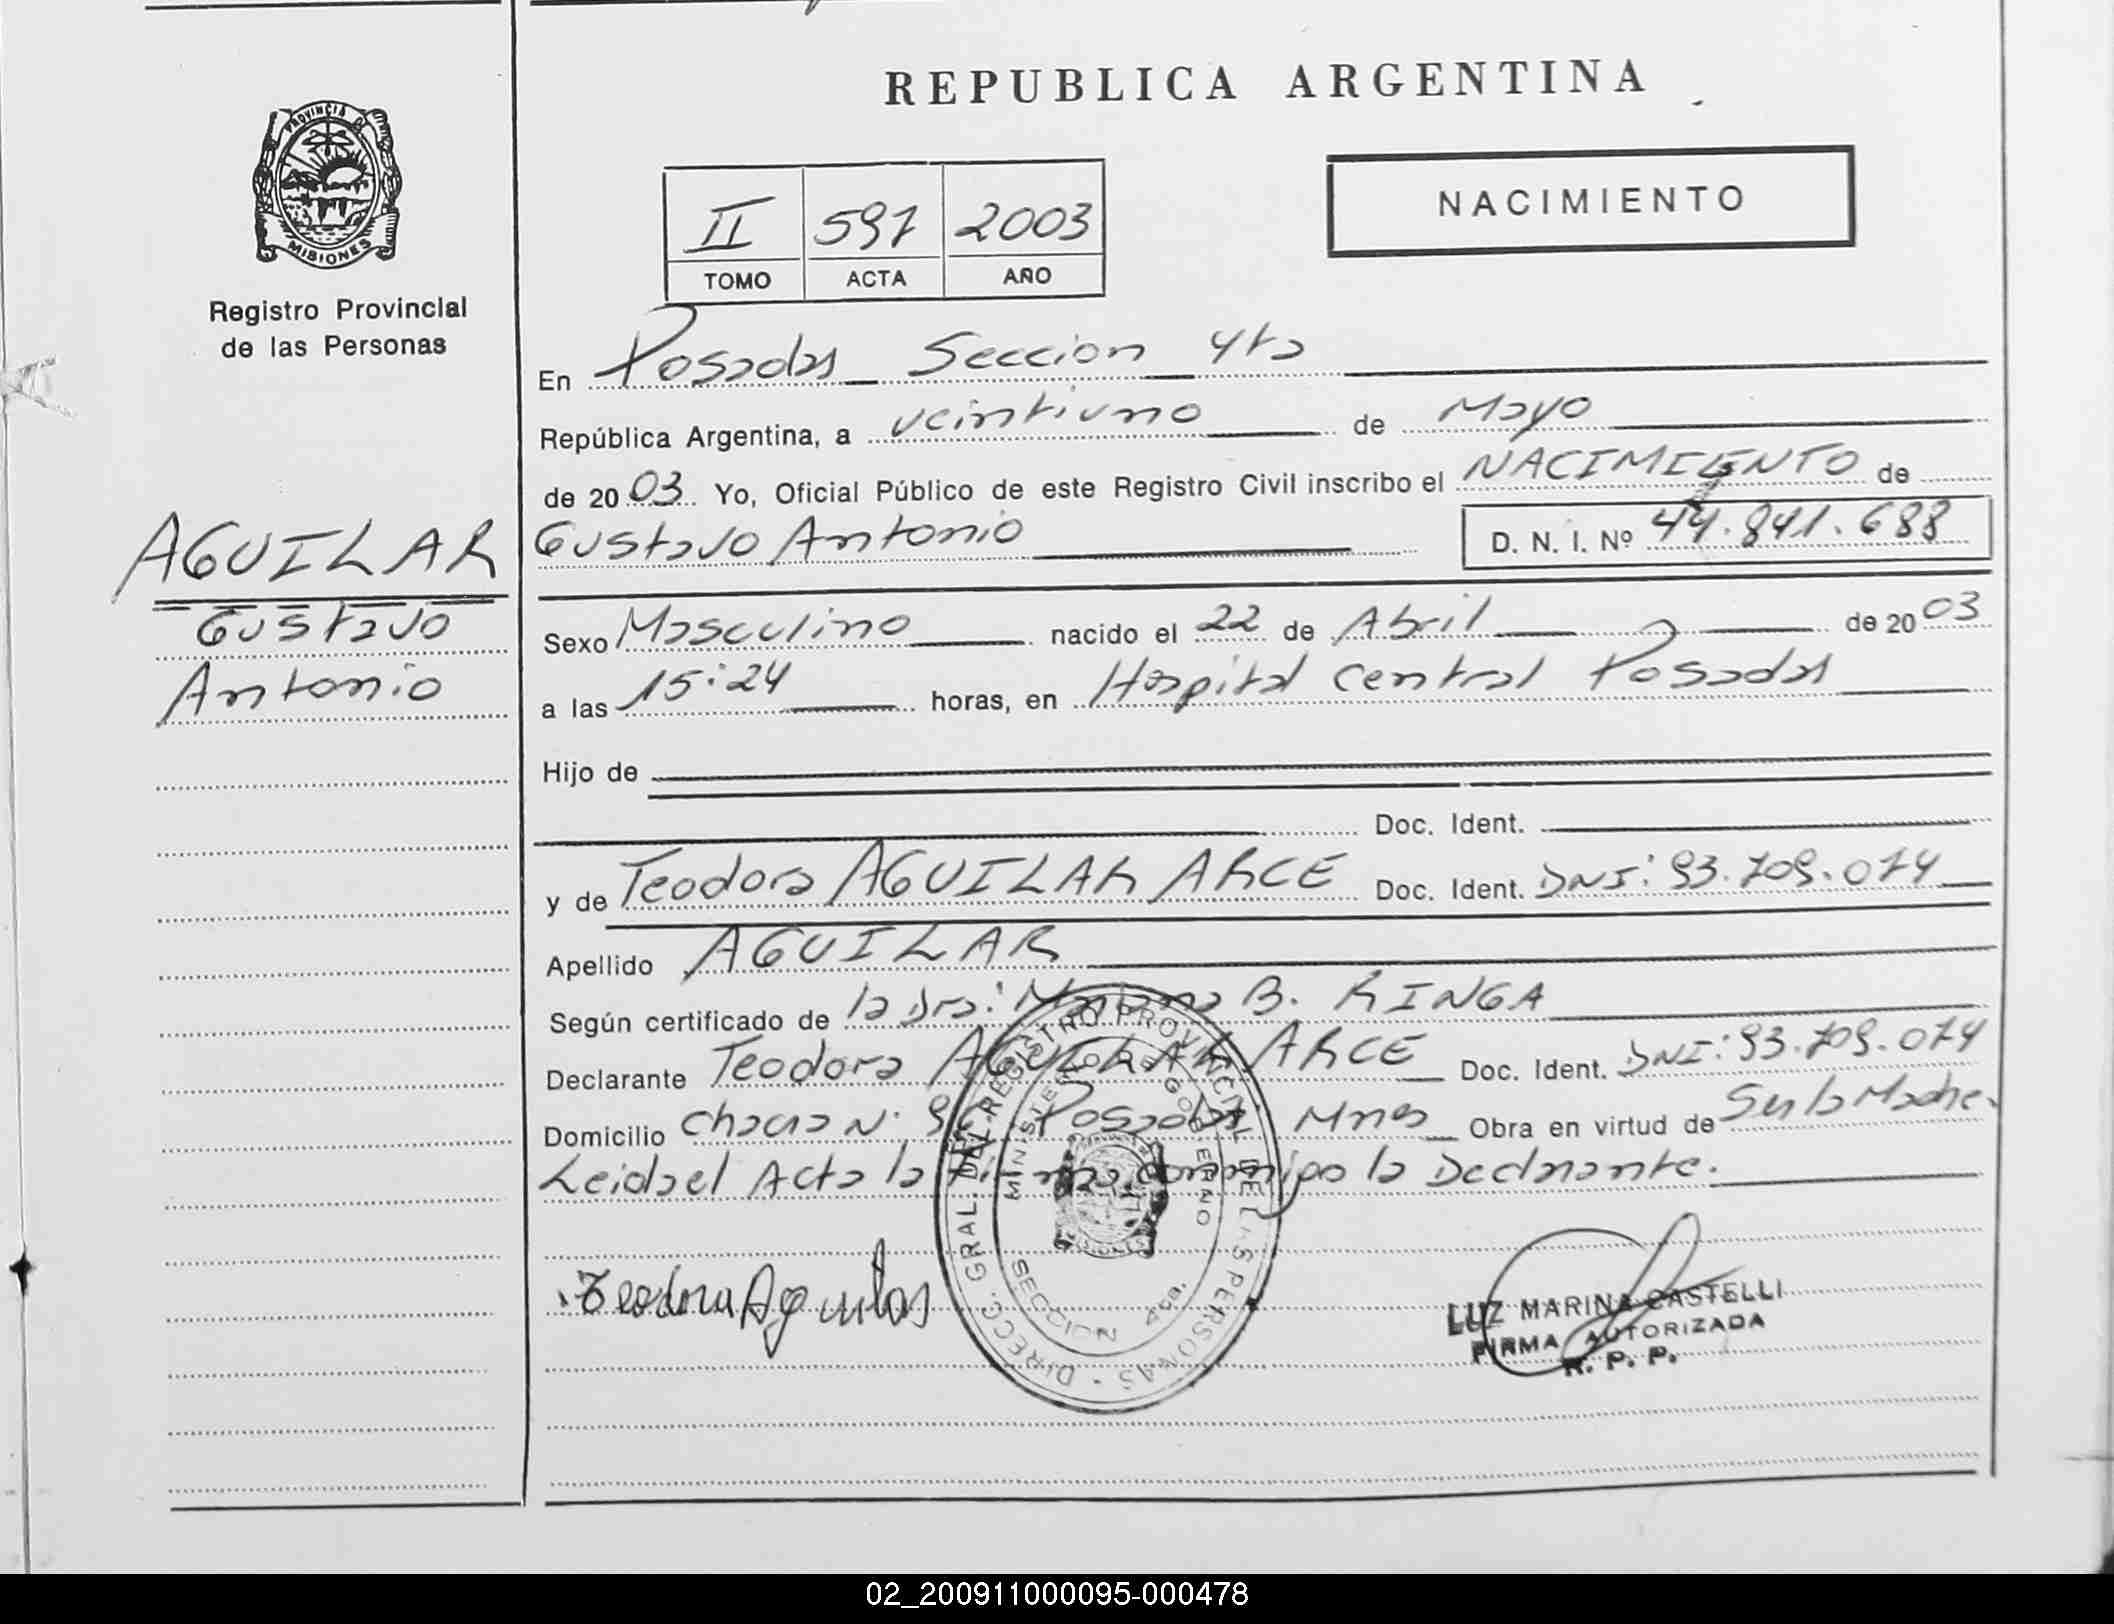 REPUBLICA ARGENTINA
PROVINCIA DE
MISIONES
Registro Provincial
de las Personas
II 597 2003
TOMO ACTA AÑO
NACIMIENTO
En Posadas Seccion 4ta
República Argentina, a veintiuno de Mayo
de 2003 Yo, Oficial Público de este Registro Civil inscribo el NACIMIENTO de
AGUILAR
Gustavo
Antonio
Gustavo Antonio D. N. I. Nº 44.841.688
Sexo Masculino nacido el 22 de Abril de 2003
a las 15:24 horas, en Hospital Central Posadas
Hijo de
Doc. Ident.
y de Teodora AGUILAR ARCE Doc. Ident. DNI: 93.709.074
Apellido AGUILAR
Según certificado de la Dra: B. RINGA
Declarante Teodora AGUILAR ARCE Doc. Ident. DNI: 93.709.074
Domicilio Chacra N: Posadas Mnes Obra en virtud de Ser la Madre.
Leida el Acta la firma conmigo la Declarante.
Teodora Aguilar
DIRECC. GRAL. DEL REGISTRO PROVINCIAL DE LAS PERSONAS
MINISTERIO DE GOBIERNO
SECCION 4ta.
LUZ MARINA CASTELLI
FIRMA AUTORIZADA
R. P. P.
02_200911000095-000478